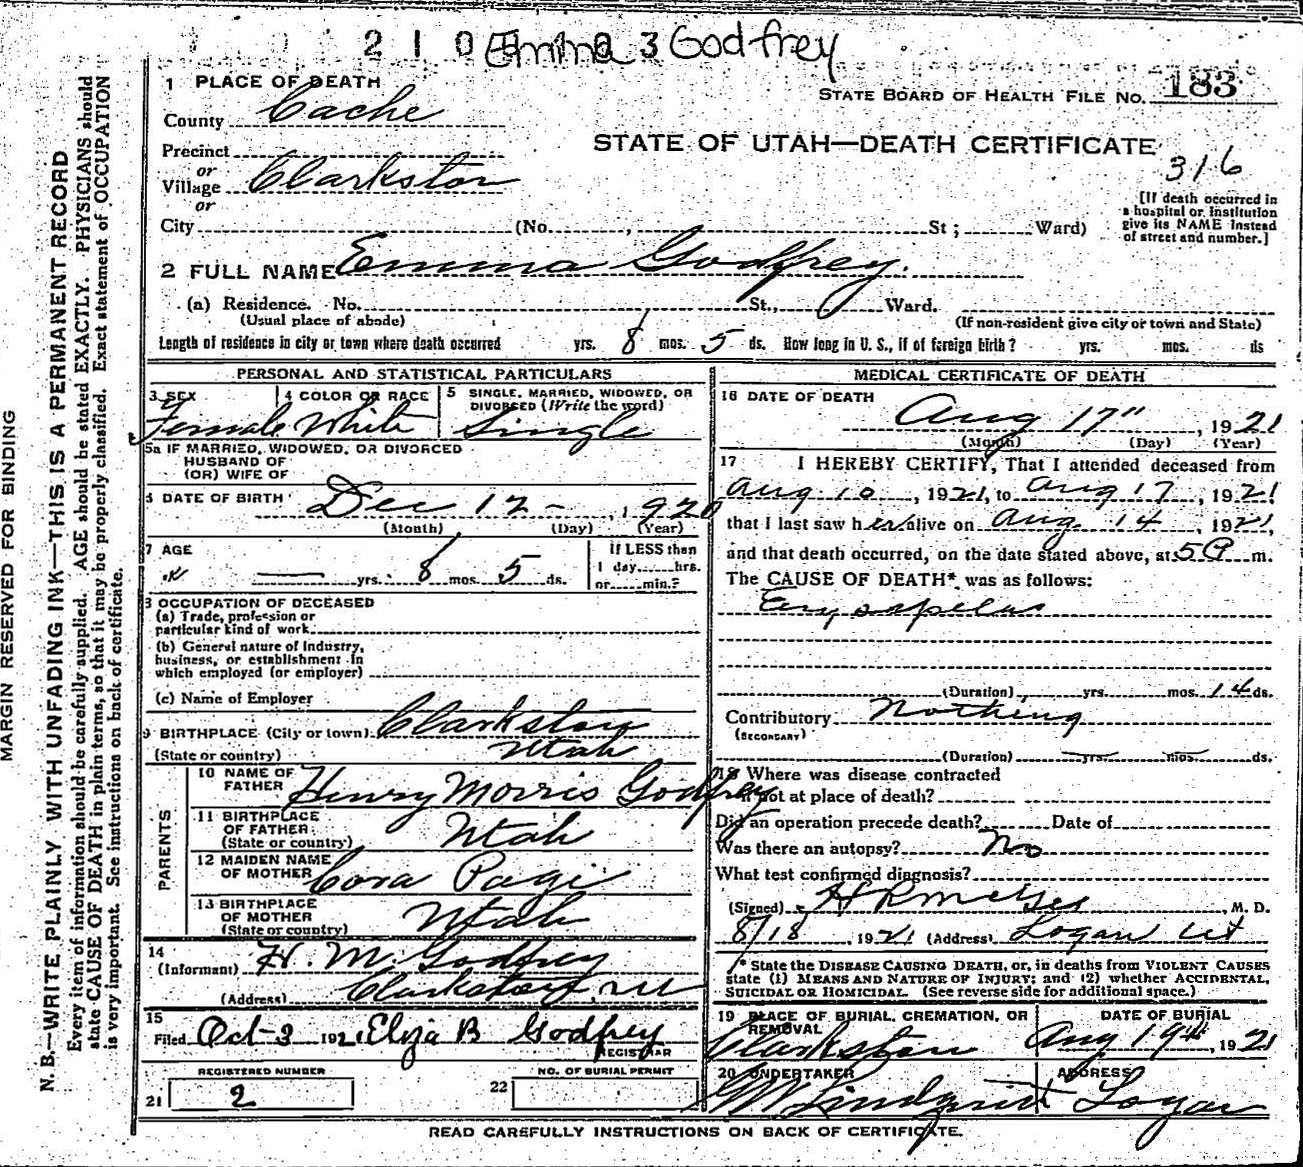 2 1 0 3 Emma Godfrey
1 PLACE OF DEATH
County Cache
STATE BOARD OF HEALTH FILE NO. 183
STATE OF UTAH—DEATH CERTIFICATE
316
Precinct
or
Village Clarkston
or
City (No. , St; Ward)
[If death occurred in
a hospital or institution
give its NAME instead
of street and number.]
2 FULL NAME Emma Godfrey.
(a) Residence. No. St., Ward.
(Usual place of abode)
(If non-resident give city or town and State)
Length of residence in city or town where death occurred yrs. 8 mos. 5 ds. How long in U. S., if of foreign birth? yrs. mos. ds
PERSONAL AND STATISTICAL PARTICULARS
3 SEX
Female
4 COLOR OR RACE
White
5 SINGLE, MARRIED, WIDOWED, OR
DIVORCED (Write the word)
Single
5a IF MARRIED, WIDOWED, OR DIVORCED
HUSBAND OF
(OR) WIFE OF
6 DATE OF BIRTH Dec 12 - , 1920
(Month) (Day) (Year)
7 AGE
— yrs. 8 mos. 5 ds.
If LESS than
1 day hrs.
or min.?
8 OCCUPATION OF DECEASED
(a) Trade, profession or
particular kind of work
(b) General nature of Industry,
business, or establishment in
which employed (or employer)
(c) Name of Employer
9 BIRTHPLACE (City or town) Clarkston
(State or country) Utah
PARENTS
10 NAME OF
FATHER Henry Morris Godfrey
11 BIRTHPLACE
OF FATHER
(State or country) Utah
12 MAIDEN NAME
OF MOTHER Cora Pagi
13 BIRTHPLACE
OF MOTHER
(State or country) Utah
14
(Informant) H. M. Godfrey
(Address) Clarkston, Ut
15
Filed Oct-3 1921 Eliza B Godfrey
REGISTRAR
REGISTERED NUMBER
21 2
NO. OF BURIAL PERMIT
22
MEDICAL CERTIFICATE OF DEATH
16 DATE OF DEATH
Aug 17" , 1921
(Month) (Day) (Year)
17 I HEREBY CERTIFY, That I attended deceased from
Aug 10 , 1921, to Aug 17 , 1921
that I last saw her alive on Aug 14 , 1921,
and that death occurred, on the date stated above, at 5 P m.
The CAUSE OF DEATH* was as follows:
Erysapelas
(Duration) yrs. mos. 14 ds.
Contributory Nothing
(SECONDARY)
(Duration) yrs. mos. ds.
18 Where was disease contracted
if not at place of death?
Did an operation precede death? Date of
Was there an autopsy? No
What test confirmed diagnosis?
(Signed) M. D.
8/18 , 1921 (Address) Logan Ut
* State the DISEASE CAUSING DEATH, or, in deaths from VIOLENT CAUSES
state (1) MEANS AND NATURE OF INJURY; and (2) whether ACCIDENTAL,
SUICIDAL OR HOMICIDAL. (See reverse side for additional space.)
19 PLACE OF BURIAL, CREMATION, OR
REMOVAL
Clarkston
DATE OF BURIAL
Aug 19th , 1921
20 UNDERTAKER
Lindquist
ADDRESS
Logan
READ CAREFULLY INSTRUCTIONS ON BACK OF CERTIFICATE.
MARGIN RESERVED FOR BINDING
N. B.—WRITE PLAINLY WITH UNFADING INK—THIS IS A PERMANENT RECORD
Every item of information should be carefully supplied. AGE should be stated EXACTLY. PHYSICIANS should
state CAUSE OF DEATH in plain terms, so that it may be properly classified. Exact statement of OCCUPATION
is very important. See instructions on back of certificate.